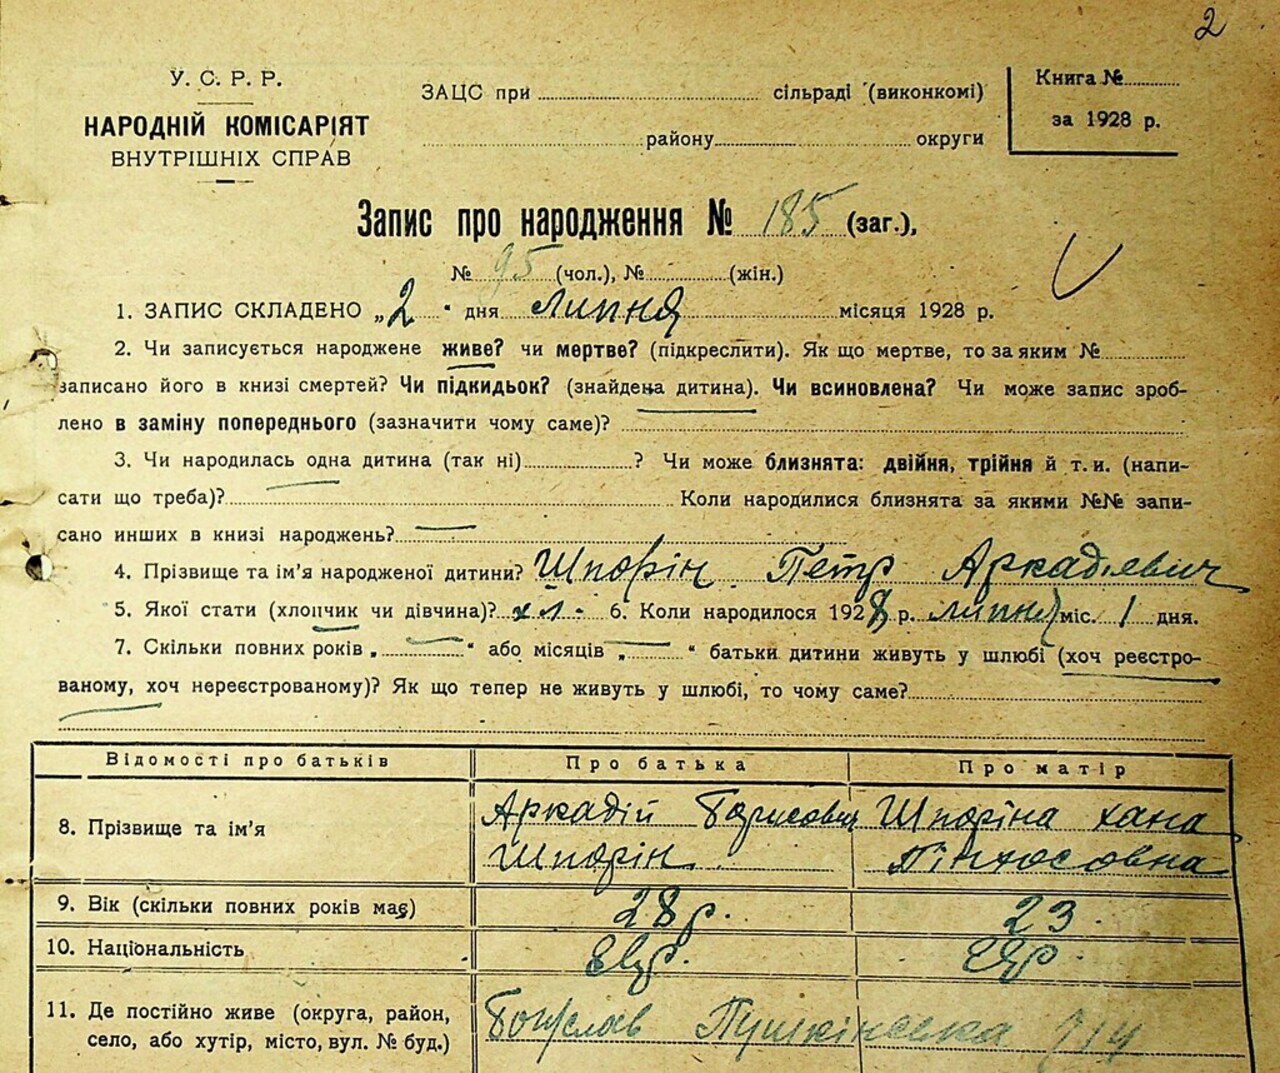 2
У. С. Р. Р.
НАРОДНІЙ КОМІСАРІЯТ
ВНУТРІШНІХ СПРАВ
ЗАЦС при сільраді (виконкомі)
району округи
Книга №
за 1928 р.
Запис про народження № 185 (заг.),
№ 95 (чол.), № (жін.)
1. ЗАПИС СКЛАДЕНО „2" дня липня місяця 1928 р.
2. Чи записується народжене живе? чи мертве? (підкреслити). Як що мертве, то за яким №
записано його в книзі смертей? Чи підкидьок? (знайдена дитина). Чи всиновлена? Чи може запис зроб-
лено в заміну попереднього (зазначити чому саме)?
3. Чи народилась одна дитина (так ні) ? Чи може близнята: двійня, трійня й т. и. (напи-
сати що треба)? Коли народилися близнята за якими №№ запи-
сано инших в книзі народжень? —
4. Прізвище та ім'я народженої дитини? Шпорін Петр Аркадієвич
5. Якої стати (хлопчик чи дівчина)? хл. 6. Коли народилося 1928 р. липня міс. 1 дня.
7. Скільки повних років „ — " або місяців „ — " батьки дитини живуть у шлюбі (хоч реєстро-
ваному, хоч нереєстрованому)? Як що тепер не живуть у шлюбі, то чому саме?
Відомості про батьків Про батька Про матір
8. Прізвище та ім'я Аркадій Борисович Шпорін Шпоріна Хана Пінхосовна
9. Вік (скільки повних років має) 28 р. 23.
10. Національність Євр. Євр.
11. Де постійно живе (округа, район,
село, або хутір, місто, вул. № буд.) Богуслав Пушкінська